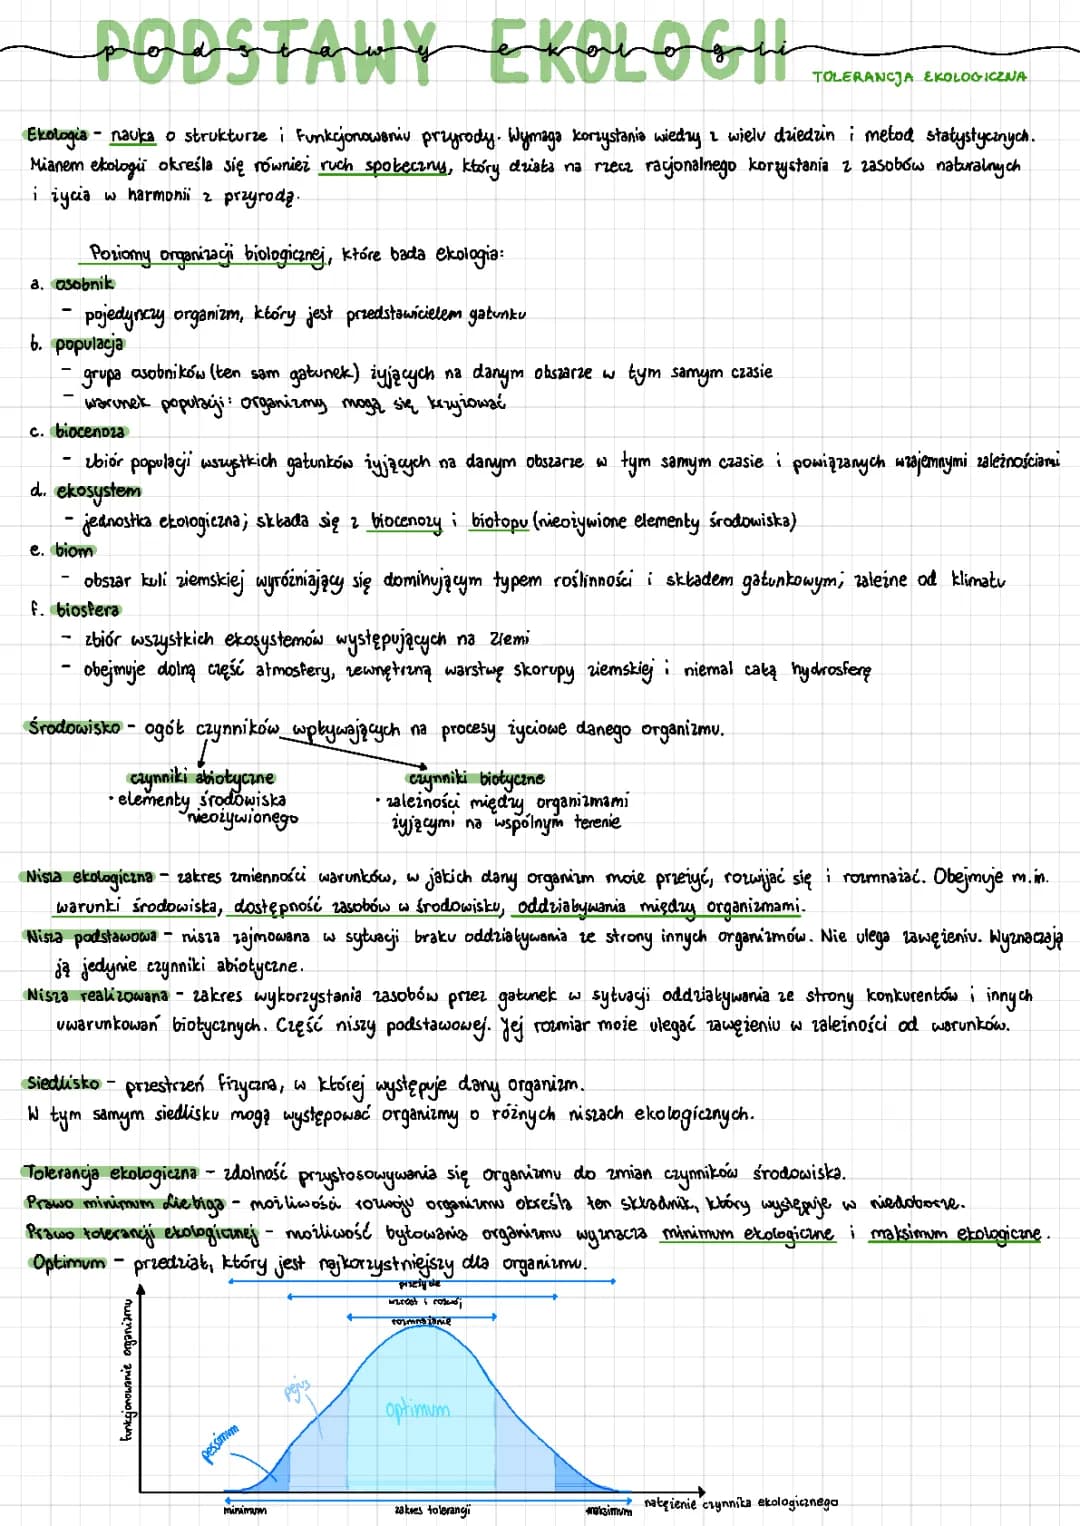 PODSTAWY EKOLOGII
podstawy ekologii
TOLERANCJA EKOLOGICZNA
Ekologia - nauka o strukturze i funkcjonowaniu przyrody. Wymaga korzystania wiedzy z wielu dziedzin i metod statystycznych.
Mianem ekologii określa się również ruch społeczny, który działa na rzecz racjonalnego korzystania z zasobów naturalnych
i życia w harmonii z przyrodą.
Poziomy organizacji biologicznej, które bada ekologia:
a. osobnik
- pojedynczy organizm, który jest przedstawicielem gatunku
b. populacja
- grupa osobników (ten sam gatunek) żyjących na danym obszarze w tym samym czasie
- warunek populacji: organizmy mogą się krzyżować
c. biocenoza
- zbiór populacji wszystkich gatunków żyjących na danym obszarze w tym samym czasie i powiązanych wzajemnymi zależnościami
d. ekosystem
- jednostka ekologiczna; składa się z biocenozy i biotopu (nieożywione elementy środowiska)
e. biom
- obszar kuli ziemskiej wyróżniający się dominującym typem roślinności i składem gatunkowym; zależne od klimatu
f. biosfera
- zbiór wszystkich ekosystemów występujących na Ziemi
- obejmuje dolną część atmosfery, zewnętrzną warstwę skorupy ziemskiej i niemal całą hydrosferę
Środowisko - ogół czynników wpływających na procesy życiowe danego organizmu.
czynniki abiotyczne
• elementy środowiska
nieożywionego
czynniki biotyczne
• zależności między organizmami
żyjącymi na wspólnym terenie
Nisza ekologiczna - zakres zmienności warunków, w jakich dany organizm może przeżyć, rozwijać się i rozmnażać. Obejmuje m.in.
warunki środowiska, dostępność zasobów w środowisku, oddziaływania między organizmami.
Nisza podstawowa - nisza zajmowana w sytuacji braku oddziaływania ze strony innych organizmów. Nie ulega zawężeniu. Wyznaczają
ją jedynie czynniki abiotyczne.
Nisza realizowana - zakres wykorzystania zasobów przez gatunek w sytuacji oddziaływania ze strony konkurentów i innych
uwarunkowań biotycznych. Część niszy podstawowej. Jej rozmiar może ulegać zawężeniu w zależności od warunków.
Siedlisko - przestrzeń fizyczna, w której występuje dany organizm.
W tym samym siedlisku mogą występować organizmy o różnych niszach ekologicznych.
Tolerancja ekologiczna - zdolność przystosowywania się organizmu do zmian czynników środowiska.
Prawo minimum Liebiga - możliwości rozwoju organizmu określa ten składnik, który występuje w niedoborze.
Prawo tolerancji ekologicznej - możliwość bytowania organizmu wyznacza minimum ekologiczne i maksimum ekologiczne.
Optimum - przedział, który jest najkorzystniejszy dla organizmu.
przeżycie
wzrost i rozwój
rozmnażanie
funkcjonowanie organizmu
pejus
optimum
pessimum
minimum
zakres tolerancji
maksimum
natężenie czynnika ekologicznego